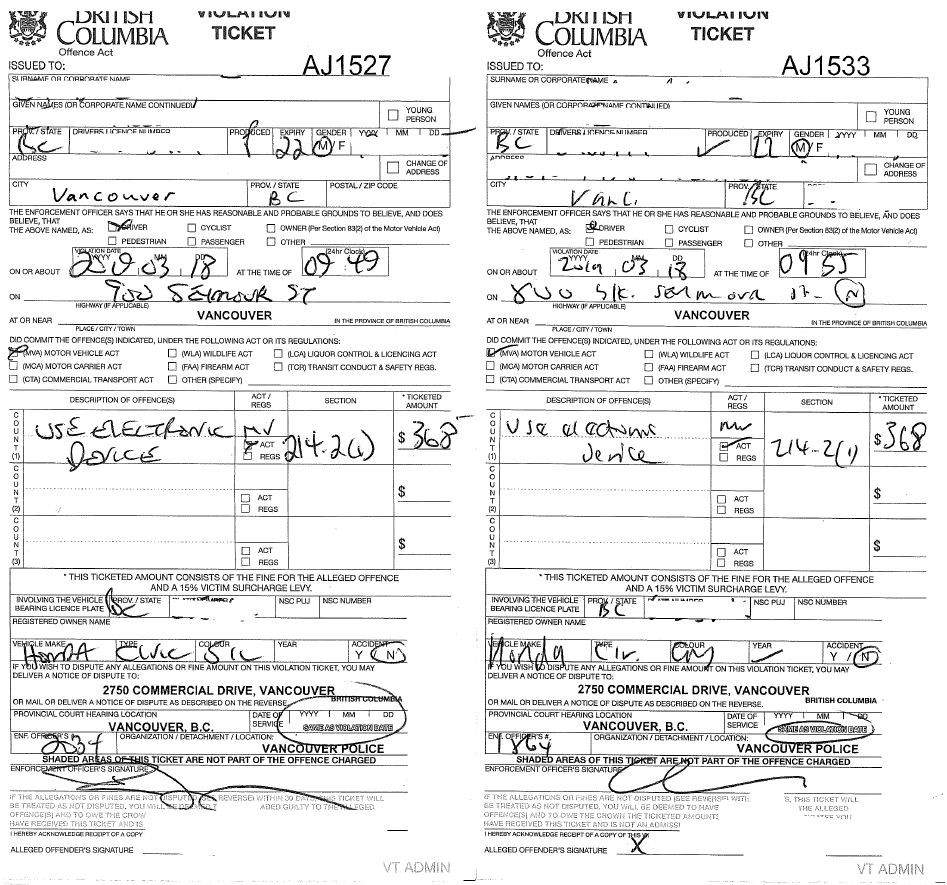 BRITISH
COLUMBIA
Offence Act
VIOLATION
TICKET
ISSUED TO:
AJ1527
SURNAME OR CORPORATE NAME
GIVEN NAMES (OR CORPORATE NAME CONTINUED)
YOUNG
PERSON
PROV. / STATE DRIVERS LICENCE NUMBER PRODUCED EXPIRY GENDER YYYY MM DD
BC 22 M / F
ADDRESS
CHANGE OF
ADDRESS
CITY PROV. / STATE POSTAL / ZIP CODE
Vancouver BC
THE ENFORCEMENT OFFICER SAYS THAT HE OR SHE HAS REASONABLE AND PROBABLE GROUNDS TO BELIEVE, AND DOES
BELIEVE, THAT
THE ABOVE NAMED, AS: DRIVER CYCLIST OWNER (Per Section 83(2) of the Motor Vehicle Act)
PEDESTRIAN PASSENGER OTHER
VIOLATION DATE
YYYY MM DD (24hr Clock)
ON OR ABOUT 2019 03 18 AT THE TIME OF 09 49
ON 900 SEYMOUR ST
HIGHWAY (IF APPLICABLE)
AT OR NEAR VANCOUVER IN THE PROVINCE OF BRITISH COLUMBIA
PLACE / CITY / TOWN
DID COMMIT THE OFFENCE(S) INDICATED, UNDER THE FOLLOWING ACT OR ITS REGULATIONS:
(MVA) MOTOR VEHICLE ACT (WLA) WILDLIFE ACT (LCA) LIQUOR CONTROL & LICENCING ACT
(MCA) MOTOR CARRIER ACT (FAA) FIREARM ACT (TCR) TRANSIT CONDUCT & SAFETY REGS.
(CTA) COMMERCIAL TRANSPORT ACT OTHER (SPECIFY)
DESCRIPTION OF OFFENCE(S) ACT / REGS SECTION * TICKETED AMOUNT
COUNT (1) USE ELECTRONIC DEVICE MV ACT REGS 214.2(1) $ 368
COUNT (2) ACT REGS $
COUNT (3) ACT REGS $
* THIS TICKETED AMOUNT CONSISTS OF THE FINE FOR THE ALLEGED OFFENCE
AND A 15% VICTIM SURCHARGE LEVY.
INVOLVING THE VEHICLE PROV. / STATE NSC PUJ NSC NUMBER
BEARING LICENCE PLATE BC
REGISTERED OWNER NAME
VEHICLE MAKE TYPE COLOUR YEAR ACCIDENT
HONDA CIVIC SIL Y / N
IF YOU WISH TO DISPUTE ANY ALLEGATIONS OR FINE AMOUNT ON THIS VIOLATION TICKET, YOU MAY
DELIVER A NOTICE OF DISPUTE TO:
2750 COMMERCIAL DRIVE, VANCOUVER
BRITISH COLUMBIA
OR MAIL OR DELIVER A NOTICE OF DISPUTE AS DESCRIBED ON THE REVERSE.
PROVINCIAL COURT HEARING LOCATION DATE OF SERVICE YYYY MM DD
VANCOUVER, B.C. SAME AS VIOLATION DATE
ENF. OFFICER'S #. ORGANIZATION / DETACHMENT / LOCATION:
2534 VANCOUVER POLICE
SHADED AREAS OF THIS TICKET ARE NOT PART OF THE OFFENCE CHARGED
ENFORCEMENT OFFICER'S SIGNATURE
IF THE ALLEGATIONS OR FINES ARE NOT DISPUTED (SEE REVERSE) WITHIN 30 DAYS, THIS TICKET WILL
BE TREATED AS NOT DISPUTED, YOU WILL BE DEEMED GUILTY TO THE ALLEGED
OFFENCE(S) AND TO OWE THE CROWN
HAVE RECEIVED THIS TICKET AND IS
I HEREBY ACKNOWLEDGE RECEIPT OF A COPY
ALLEGED OFFENDER'S SIGNATURE
VT ADMIN
BRITISH
COLUMBIA
Offence Act
VIOLATION
TICKET
ISSUED TO:
AJ1533
SURNAME OR CORPORATE NAME
GIVEN NAMES (OR CORPORATE NAME CONTINUED)
YOUNG
PERSON
PROV. / STATE DRIVERS LICENCE NUMBER PRODUCED EXPIRY GENDER YYYY MM DD
BC M / F
ADDRESS
CHANGE OF
ADDRESS
CITY PROV. / STATE
Vanc. BC
THE ENFORCEMENT OFFICER SAYS THAT HE OR SHE HAS REASONABLE AND PROBABLE GROUNDS TO BELIEVE, AND DOES
BELIEVE, THAT
THE ABOVE NAMED, AS: DRIVER CYCLIST OWNER (Per Section 83(2) of the Motor Vehicle Act)
PEDESTRIAN PASSENGER OTHER
VIOLATION DATE
YYYY MM DD (24hr Clock)
ON OR ABOUT 2019 03 18 AT THE TIME OF 09 55
ON 800 blk. Seymour st. N
HIGHWAY (IF APPLICABLE)
AT OR NEAR VANCOUVER IN THE PROVINCE OF BRITISH COLUMBIA
PLACE / CITY / TOWN
DID COMMIT THE OFFENCE(S) INDICATED, UNDER THE FOLLOWING ACT OR ITS REGULATIONS:
(MVA) MOTOR VEHICLE ACT (WLA) WILDLIFE ACT (LCA) LIQUOR CONTROL & LICENCING ACT
(MCA) MOTOR CARRIER ACT (FAA) FIREARM ACT (TCR) TRANSIT CONDUCT & SAFETY REGS.
(CTA) COMMERCIAL TRANSPORT ACT OTHER (SPECIFY)
DESCRIPTION OF OFFENCE(S) ACT / REGS SECTION * TICKETED AMOUNT
COUNT (1) Use electronic device MV ACT REGS 214.2(1) $ 368
COUNT (2) ACT REGS $
COUNT (3) ACT REGS $
* THIS TICKETED AMOUNT CONSISTS OF THE FINE FOR THE ALLEGED OFFENCE
AND A 15% VICTIM SURCHARGE LEVY.
INVOLVING THE VEHICLE PROV. / STATE NSC PUJ NSC NUMBER
BEARING LICENCE PLATE BC
REGISTERED OWNER NAME
VEHICLE MAKE TYPE COLOUR YEAR ACCIDENT
Honda Civ. Y / N
IF YOU WISH TO DISPUTE ANY ALLEGATIONS OR FINE AMOUNT ON THIS VIOLATION TICKET, YOU MAY
DELIVER A NOTICE OF DISPUTE TO:
2750 COMMERCIAL DRIVE, VANCOUVER
BRITISH COLUMBIA
OR MAIL OR DELIVER A NOTICE OF DISPUTE AS DESCRIBED ON THE REVERSE.
PROVINCIAL COURT HEARING LOCATION DATE OF SERVICE YYYY MM DD
VANCOUVER, B.C. SAME AS VIOLATION DATE
ENF. OFFICER'S #. ORGANIZATION / DETACHMENT / LOCATION:
1864 VANCOUVER POLICE
SHADED AREAS OF THIS TICKET ARE NOT PART OF THE OFFENCE CHARGED
ENFORCEMENT OFFICER'S SIGNATURE
IF THE ALLEGATIONS OR FINES ARE NOT DISPUTED (SEE REVERSE) WITH THIS TICKET WILL
BE TREATED AS NOT DISPUTED, YOU WILL BE DEEMED TO HAVE THE ALLEGED
OFFENCE(S) AND TO OWE THE CROWN THE TICKETED AMOUNT
HAVE RECEIVED THIS TICKET AND IS NOT AN ADMISSI
I HEREBY ACKNOWLEDGE RECEIPT OF A COPY OF THIS
ALLEGED OFFENDER'S SIGNATURE X
VT ADMIN